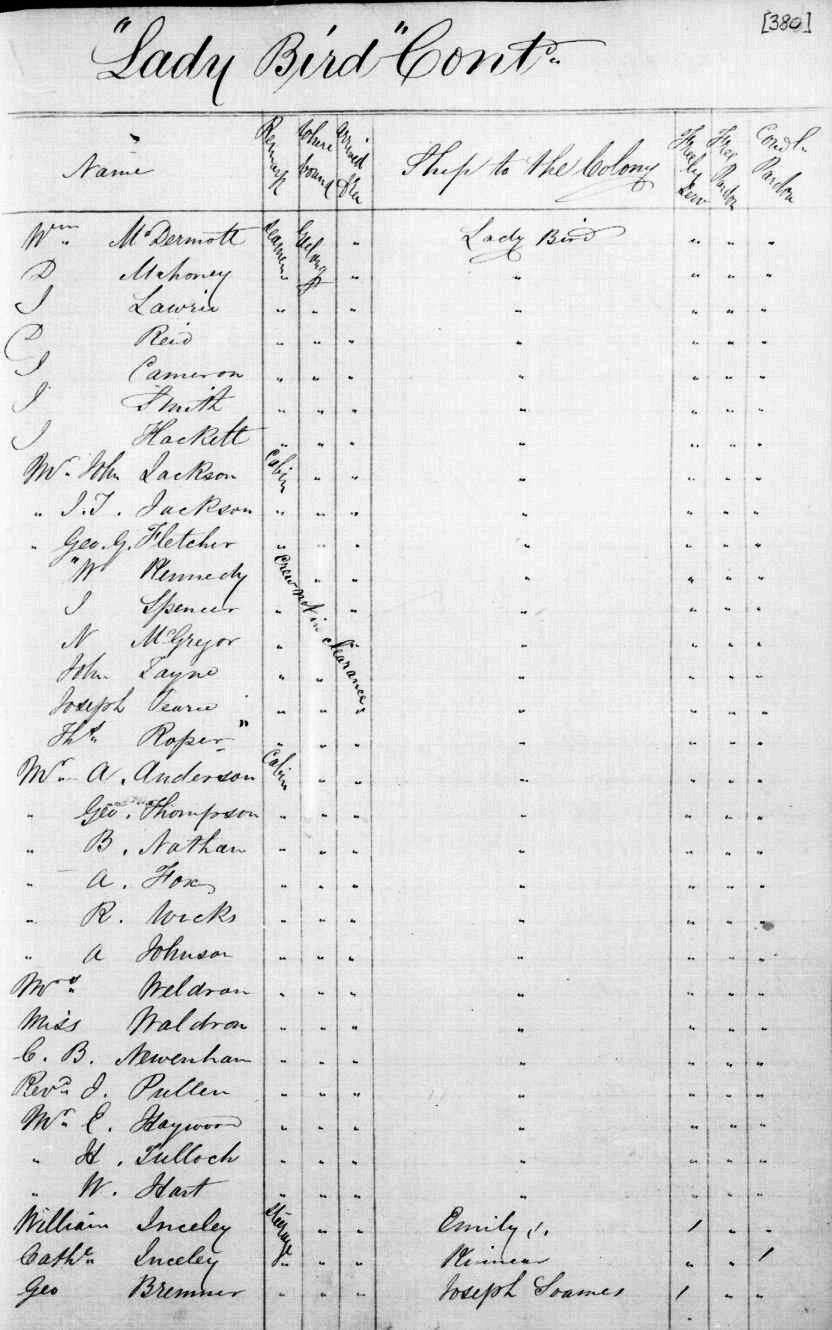 [380]
"Lady Bird" Contd.
Name Remark Where bound Arrived Ship to the Colony Freely Serv Free Pardon Condl. Pardon
Wm. McDermott Seamens Gelong " Lady Bird " " "
D Mahoney " " " " "
J Lawrie " " " " " " "
P Reid " " " " " " "
J Cameron " " " " " " "
J Smith " " " " " " "
J Hackett " " " " " " "
Mr. John Jackson Cabin " " " " " "
" J. T. Jackson " " " " " " "
" Geo. G. Fletcher " " " " " " "
"W Kennedy crew not in clearance " " " " "
J Spencer " " " " "
N McGregor " " " " "
John Tayne " " " " " "
Joseph " " " " " "
Ths. Roper " " " " " " " "
Mr. A. Anderson Cabin " " " " " "
" Geo. Thompson " " " " " " "
" B. Nathan " " " " " " "
" A. Fox " " " " " " "
" R. Wicks " " " " " " "
" A Johnson " " " " " " "
Mrs. Weldron " " " " " " "
Miss Waldron " " " " " " "
C. B. Newenham " " " " " " "
Revd. J. Pullen " " " " " " "
Mr. E. Haywood " " " " " " "
" H. Tulloch " " " " " " "
" W. Hart " " " " " " "
William Inceley Steerage " " Emily / " "
Cathe. Inceley " " " " " /
Geo Bremner " " " Joseph Soames / " "